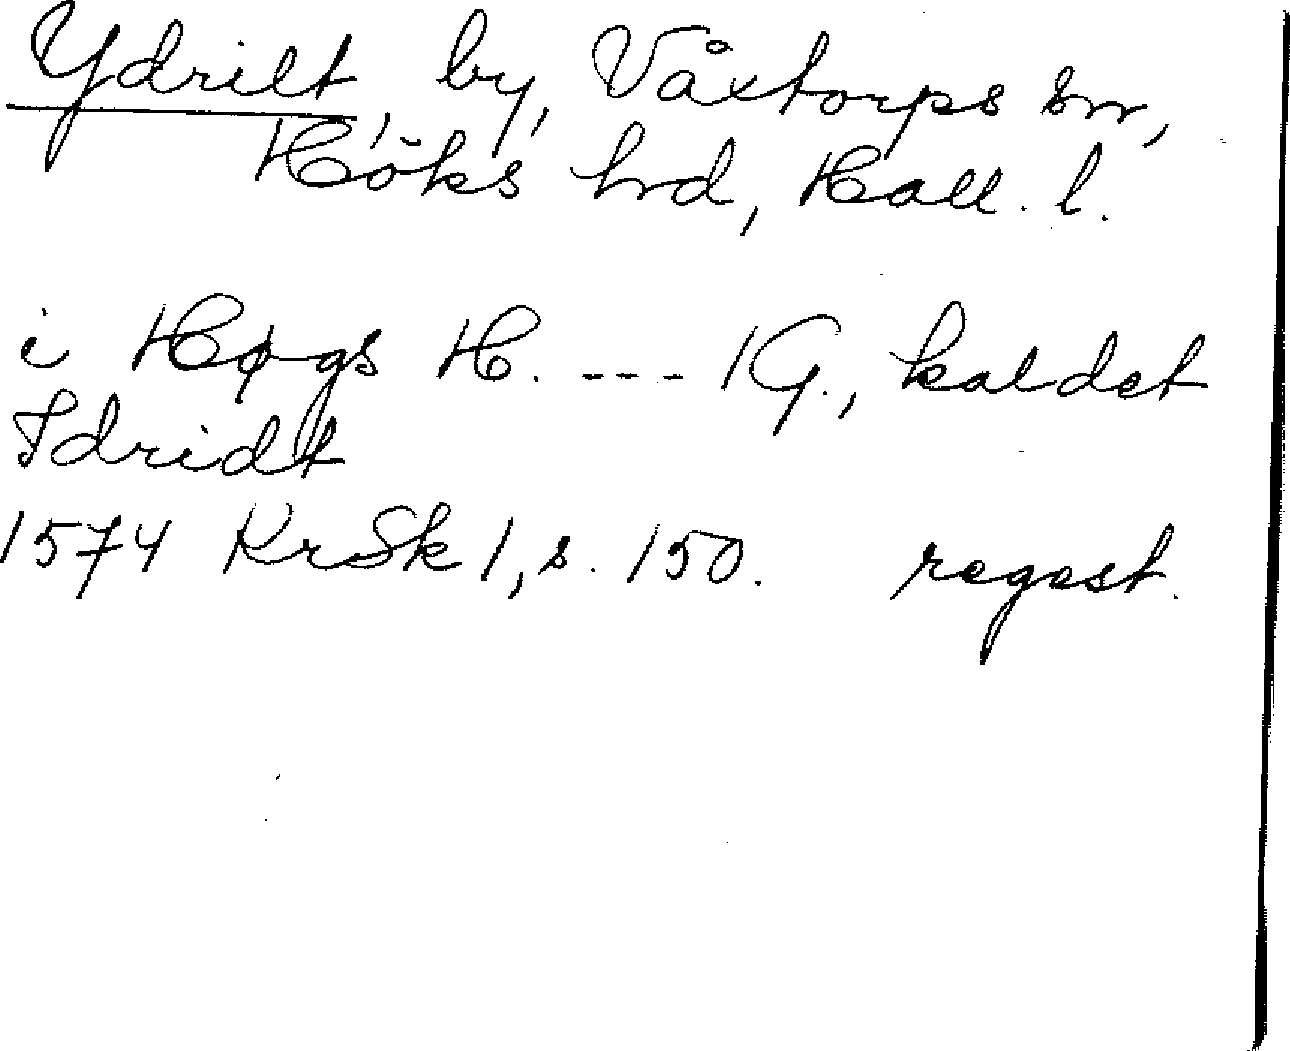 Ydrilt, by, Våxtorps sn,
Höks hrd, Hall. l.
i Høgs H. --- 1 G., kaldet
Idridt
1574 KrSk 1, s. 150. regest.